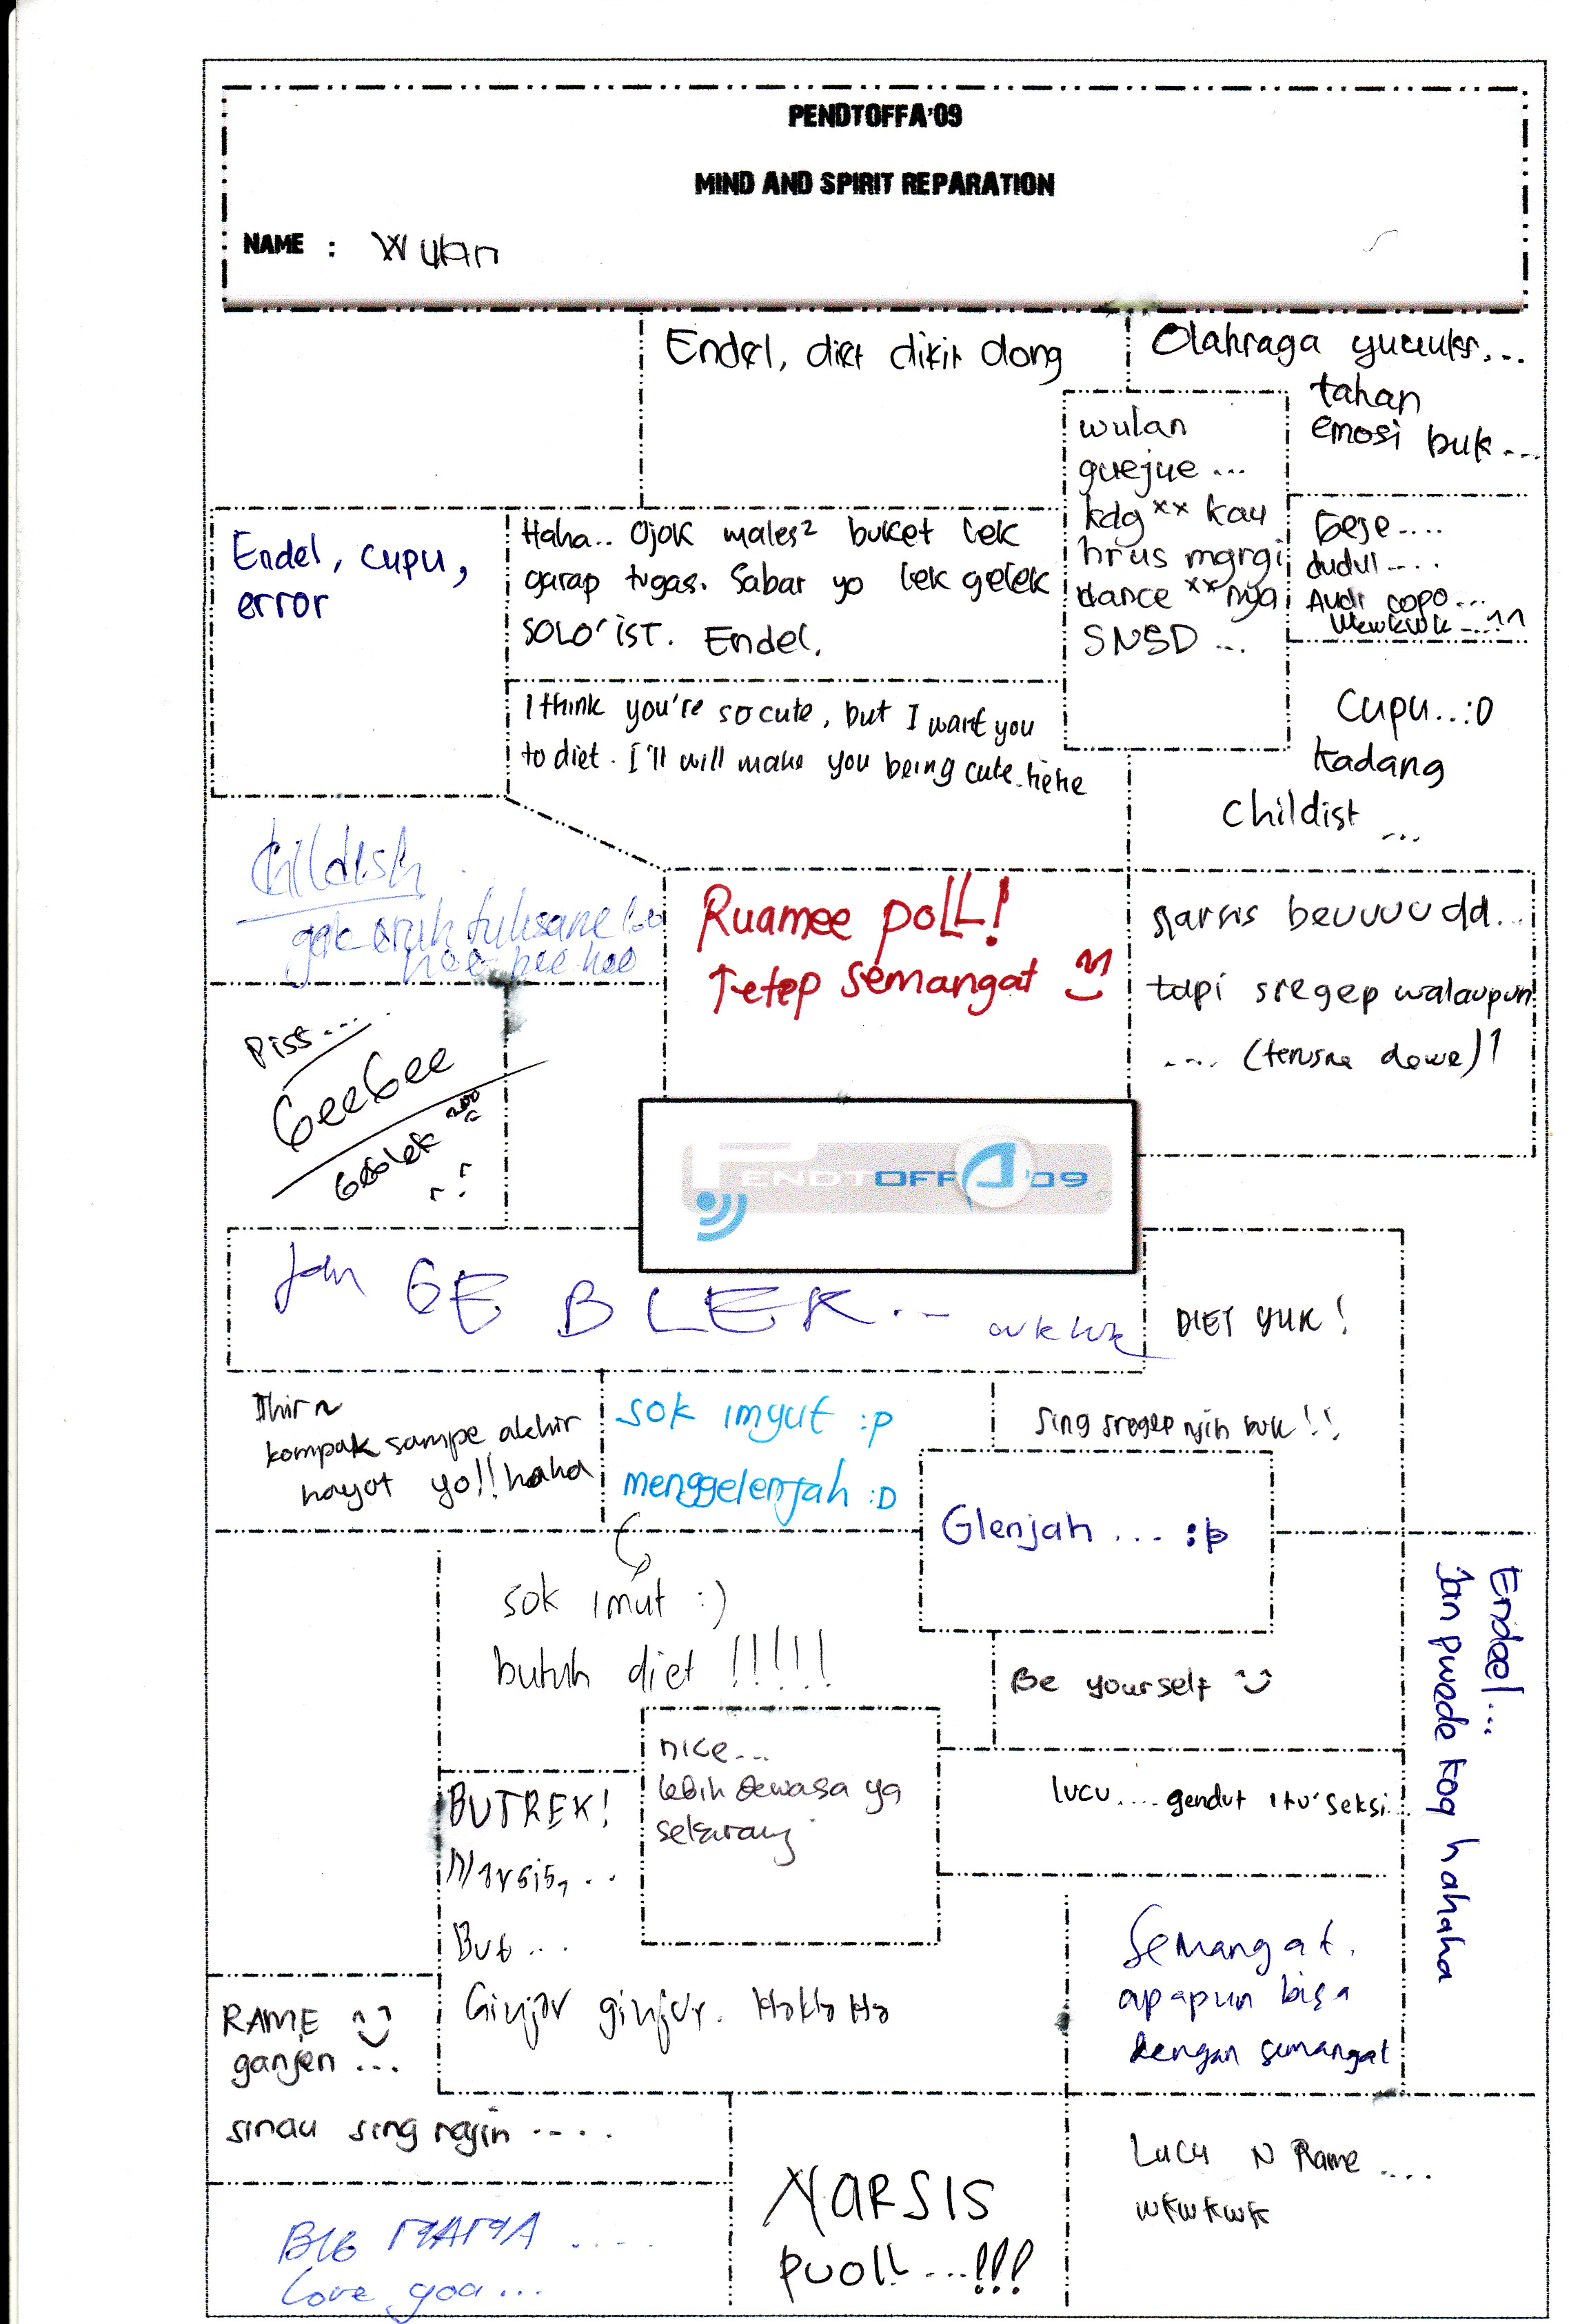 PENDTOFFA'09
MIND AND SPIRIT REPARATION
NAME : Wulan
Endel, diet dikit dong
Olahraga yuuuks...
tahan
emosi buk...
wulan
guejue ...
kdg ** kau
hrus mgrgi
dance **nya
SNSD ...
Geje....
dudul....
Audi copo...
wkwkwk....^^
Endel, cupu,
error
Haha.. Ojok males² buket lek
garap tugas. Sabar yo lek gelek
SOLO'IST. Endel.
I think you're so cute, but I want you
to diet. I'll will make you being cute. hehe
Cupu..:D
kadang
childist ...
Childish
gak eruh tulisane
hee hee hee
Ruamee poLL!
Tetep semangat
narsis beuuuudd...
tapi sregep walaupun
.... (terusna dewe)
Piss....
GeeGee
Geblek
PENDTOFFA'09
Jan GE BLEK...
DIET YUK!
kompak sampe akhir
hayat yo!! haha
sok imyut :p
menggelenjah :D
sing sregep njih buk!!
Glenjah ... :p
sok imut :)
butuh diet !!!!!
Be yourself
Endeel...
Jan pwede koq hahaha
nice...
lebih dewasa ya
sekarang
BUTREK!
Narsis, ..
But ...
Ginjar ginjur. HaHaHa
lucu.... gendut itu seksi
Semangat.
apapun bisa
dengan semangat
RAME
ganjen ...
sinau sing rajin ....
BIG MAMA .....
love you...
NARSIS
PUOLL...!!!
Lucu N Rame ....
wkwkwk